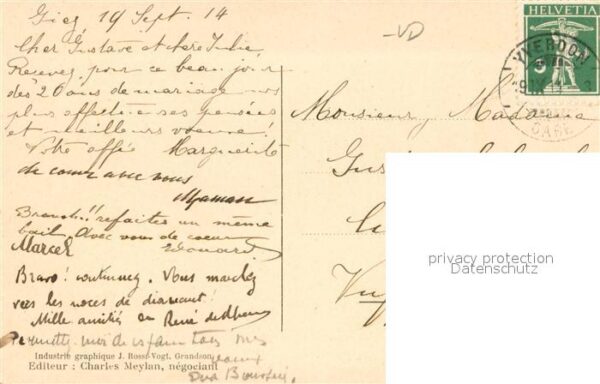 Giez, 19 Sept. 14
Cher Gustave et chère Julie,
Recevez pour ce beau jour
des 20 ans de mariage nos
plus affectueuses pensées
et meilleurs voeux!
Votre affée Marguerite
de coeur avec vous
Maman
Bravo!! refaites un même
bail, avec vous de coeur
Marcel Edouard
Bravo! continuez. Vous marchez
vers les noces de diamant!
Mille amitiés de René
Permettez-moi de
Industrie graphique J. Rossi-Vogt, Grandson
Editeur : Charles Meylan, négociant
VD
HELVETIA
5
YVERDON
GARE
Monsieur Madame
privacy protection
Datenschutz